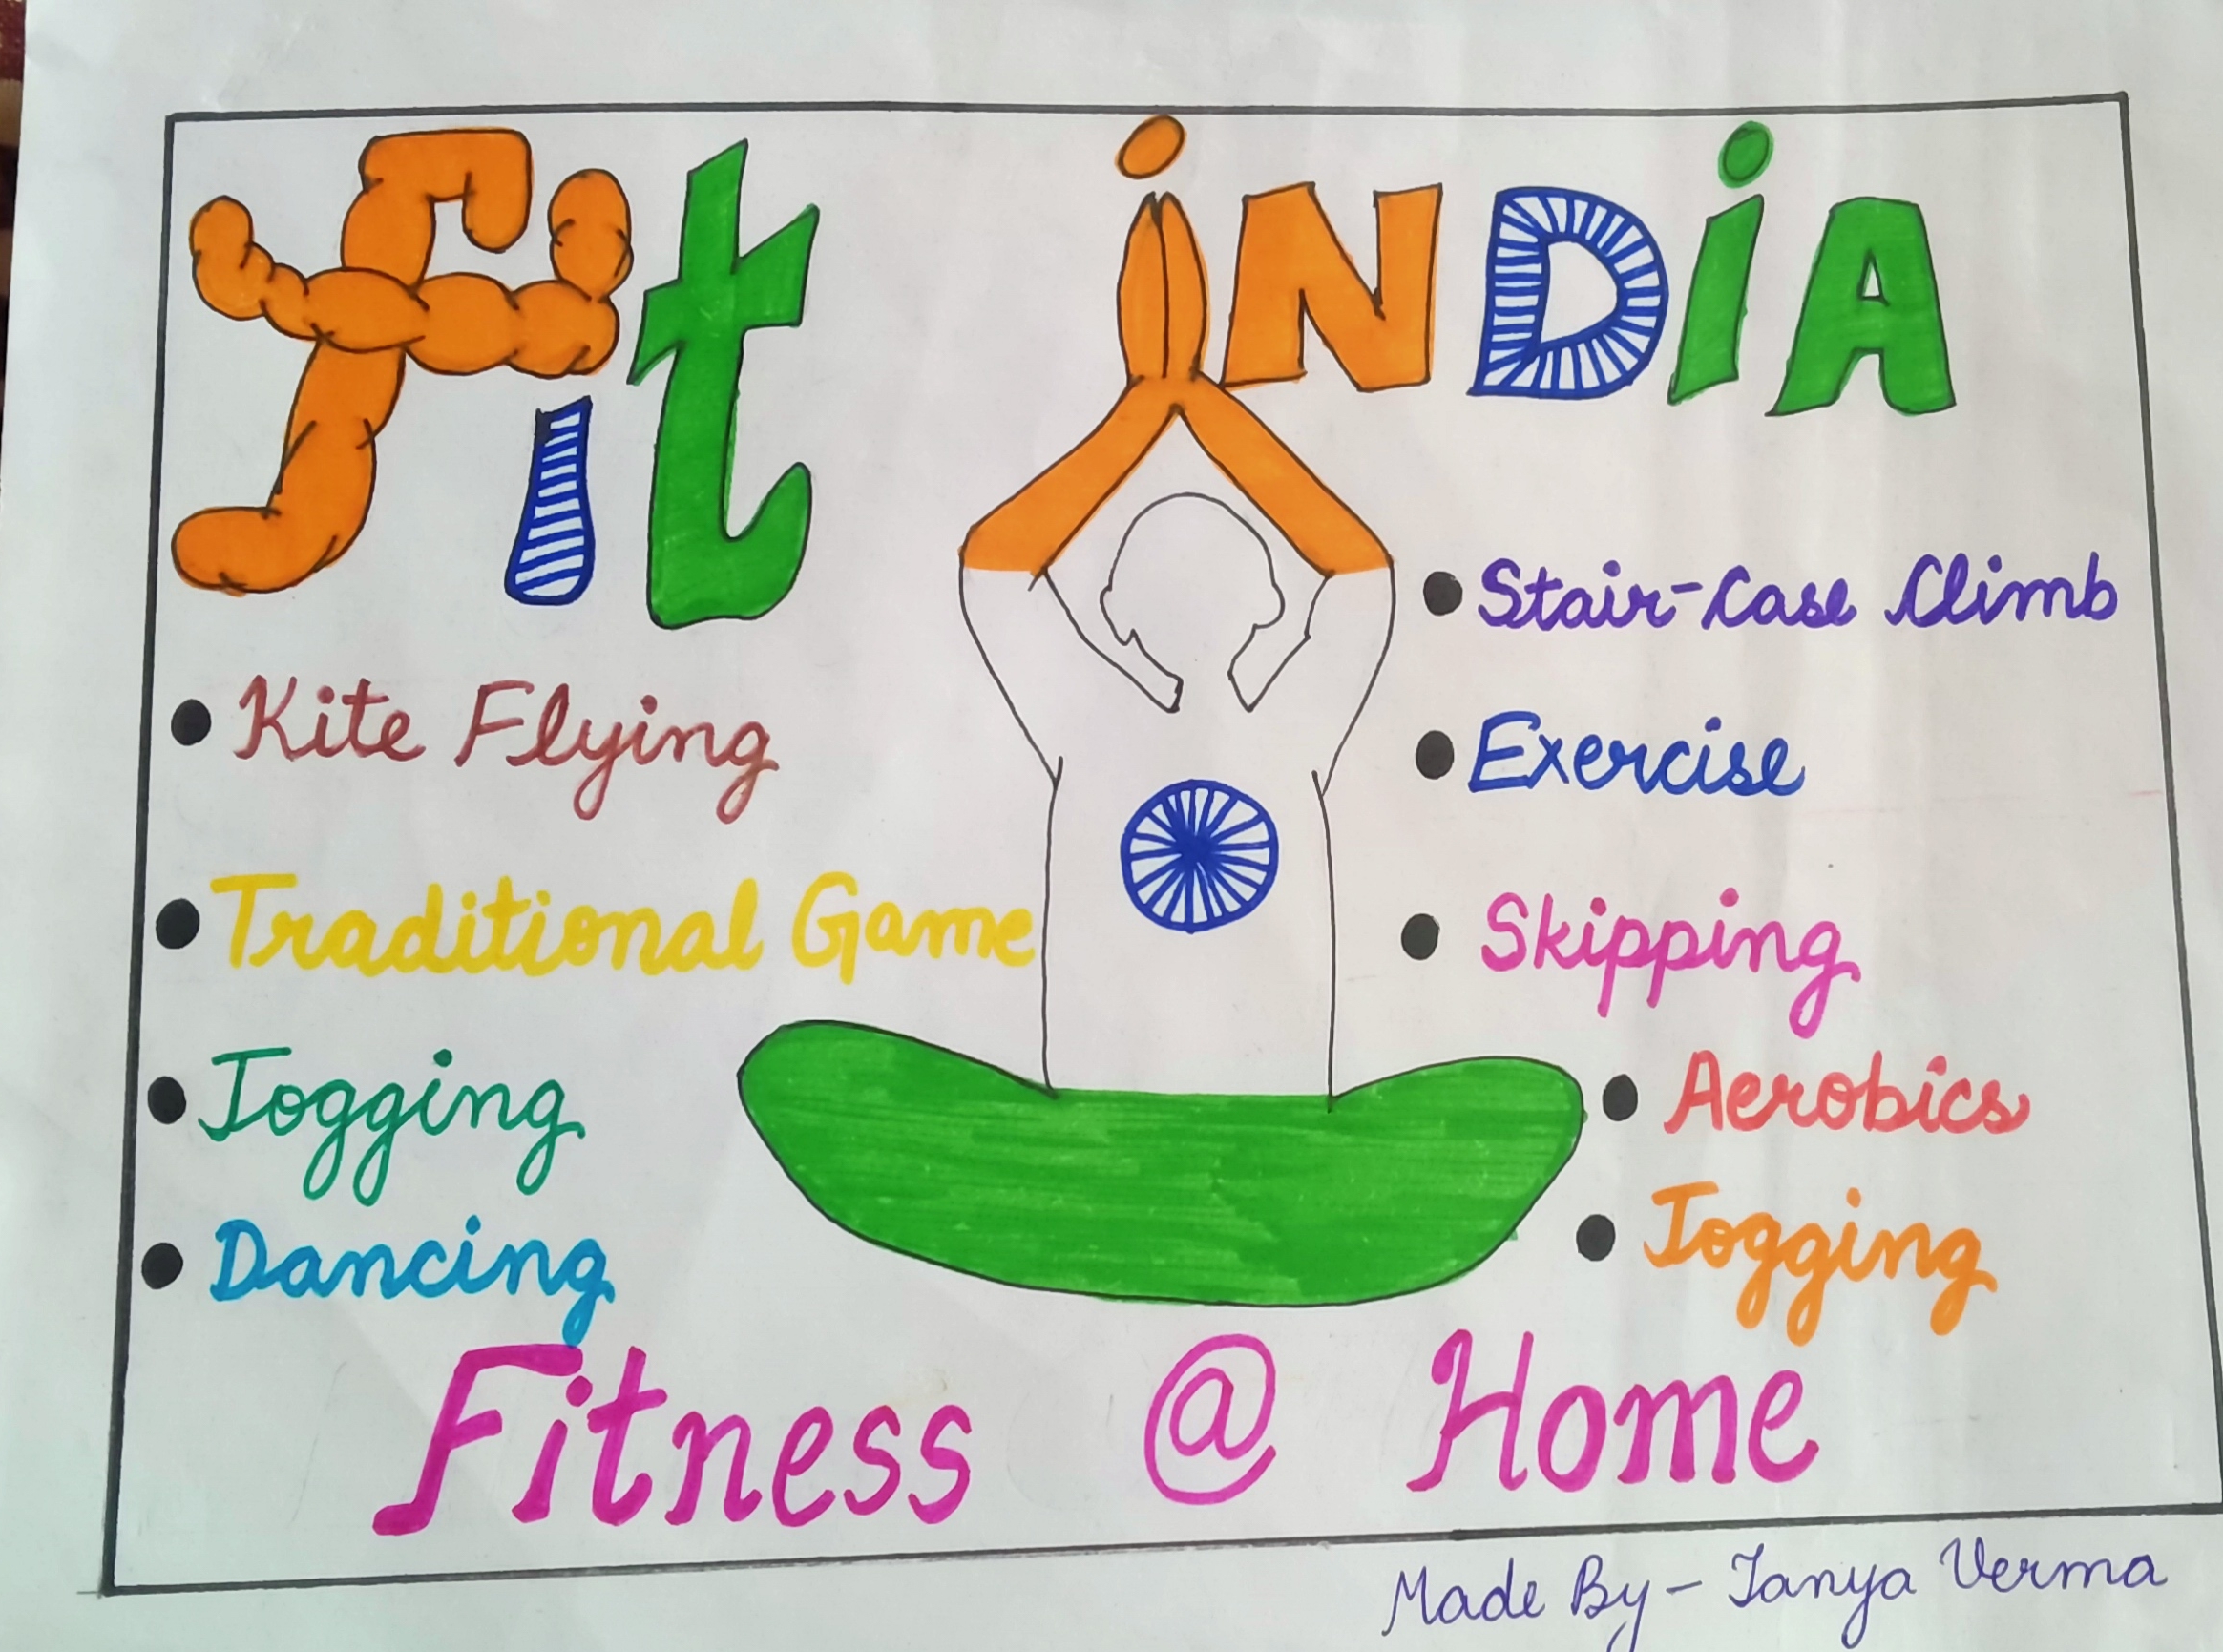 Fit iNDiA
Kite Flying
Traditional Game
Jogging
Dancing
Stair-Case Climb
Exercise
Skipping
Aerobics
Jogging
Fitness @ Home
Made By - Tanya Verma